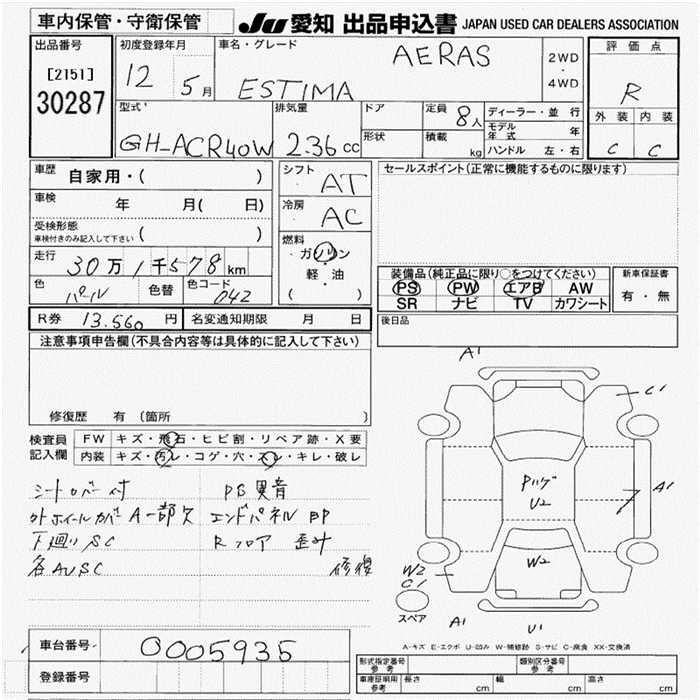 車内保管・守衛保管
JU 愛知 出品申込書 JAPAN USED CAR DEALERS ASSOCIATION
出品番号
[2151]
30287
初度登録年月
12 5月
車名・グレード
AERAS
ESTIMA
2WD
・
4WD
評価点
R
外装 内装
C C
型式
GH-ACR40W
排気量
2.36 cc
ドア
形状
定員 8人
積載 kg
ディーラー・並行
モデル年式 年
ハンドル 左・右
車歴 自家用・( )
車検 年 月( 日)
受検形態
車検付きのみ記入して下さい ( )
走行
30万1千578km
色 パール 色替 色コード 042
シフト AT
冷房 AC
燃料
ガソリン
軽・油
( )
セールスポイント(正常に機能するものに限ります)
装備品(純正品に限り○をつけてください)
PS PW エアB AW
SR ナビ TV カワシート
新車保証書
有・無
R券 13.560 円 名変通知期限 月 日
後日品
注意事項申告欄(不具合内容等は具体的に記入して下さい)
修復歴 有 (箇所 )
検査員記入欄
FW キズ・飛石・ヒビ割・リペア跡・X要
内装 キズ・汚レ・コゲ・穴・スレ・キレ・破レ
シートカバー付 PS異音
外ホイールカバーA一部欠 エンドパネルBP
下廻りSC Rフロア歪み
各AUSC 修復
A1
C1
A1
Pハゲ
U2
W2
W2
C1
スペア
A1
U1
A-キズ E-エクボ U-凹み W-補修跡 S-サビ C-腐食 XX-交換済
車台番号 0005935
登録番号
形式指定番号 参考
類別区分番号 参考
車庫証明用 参考 長さ cm 幅 cm 高さ cm